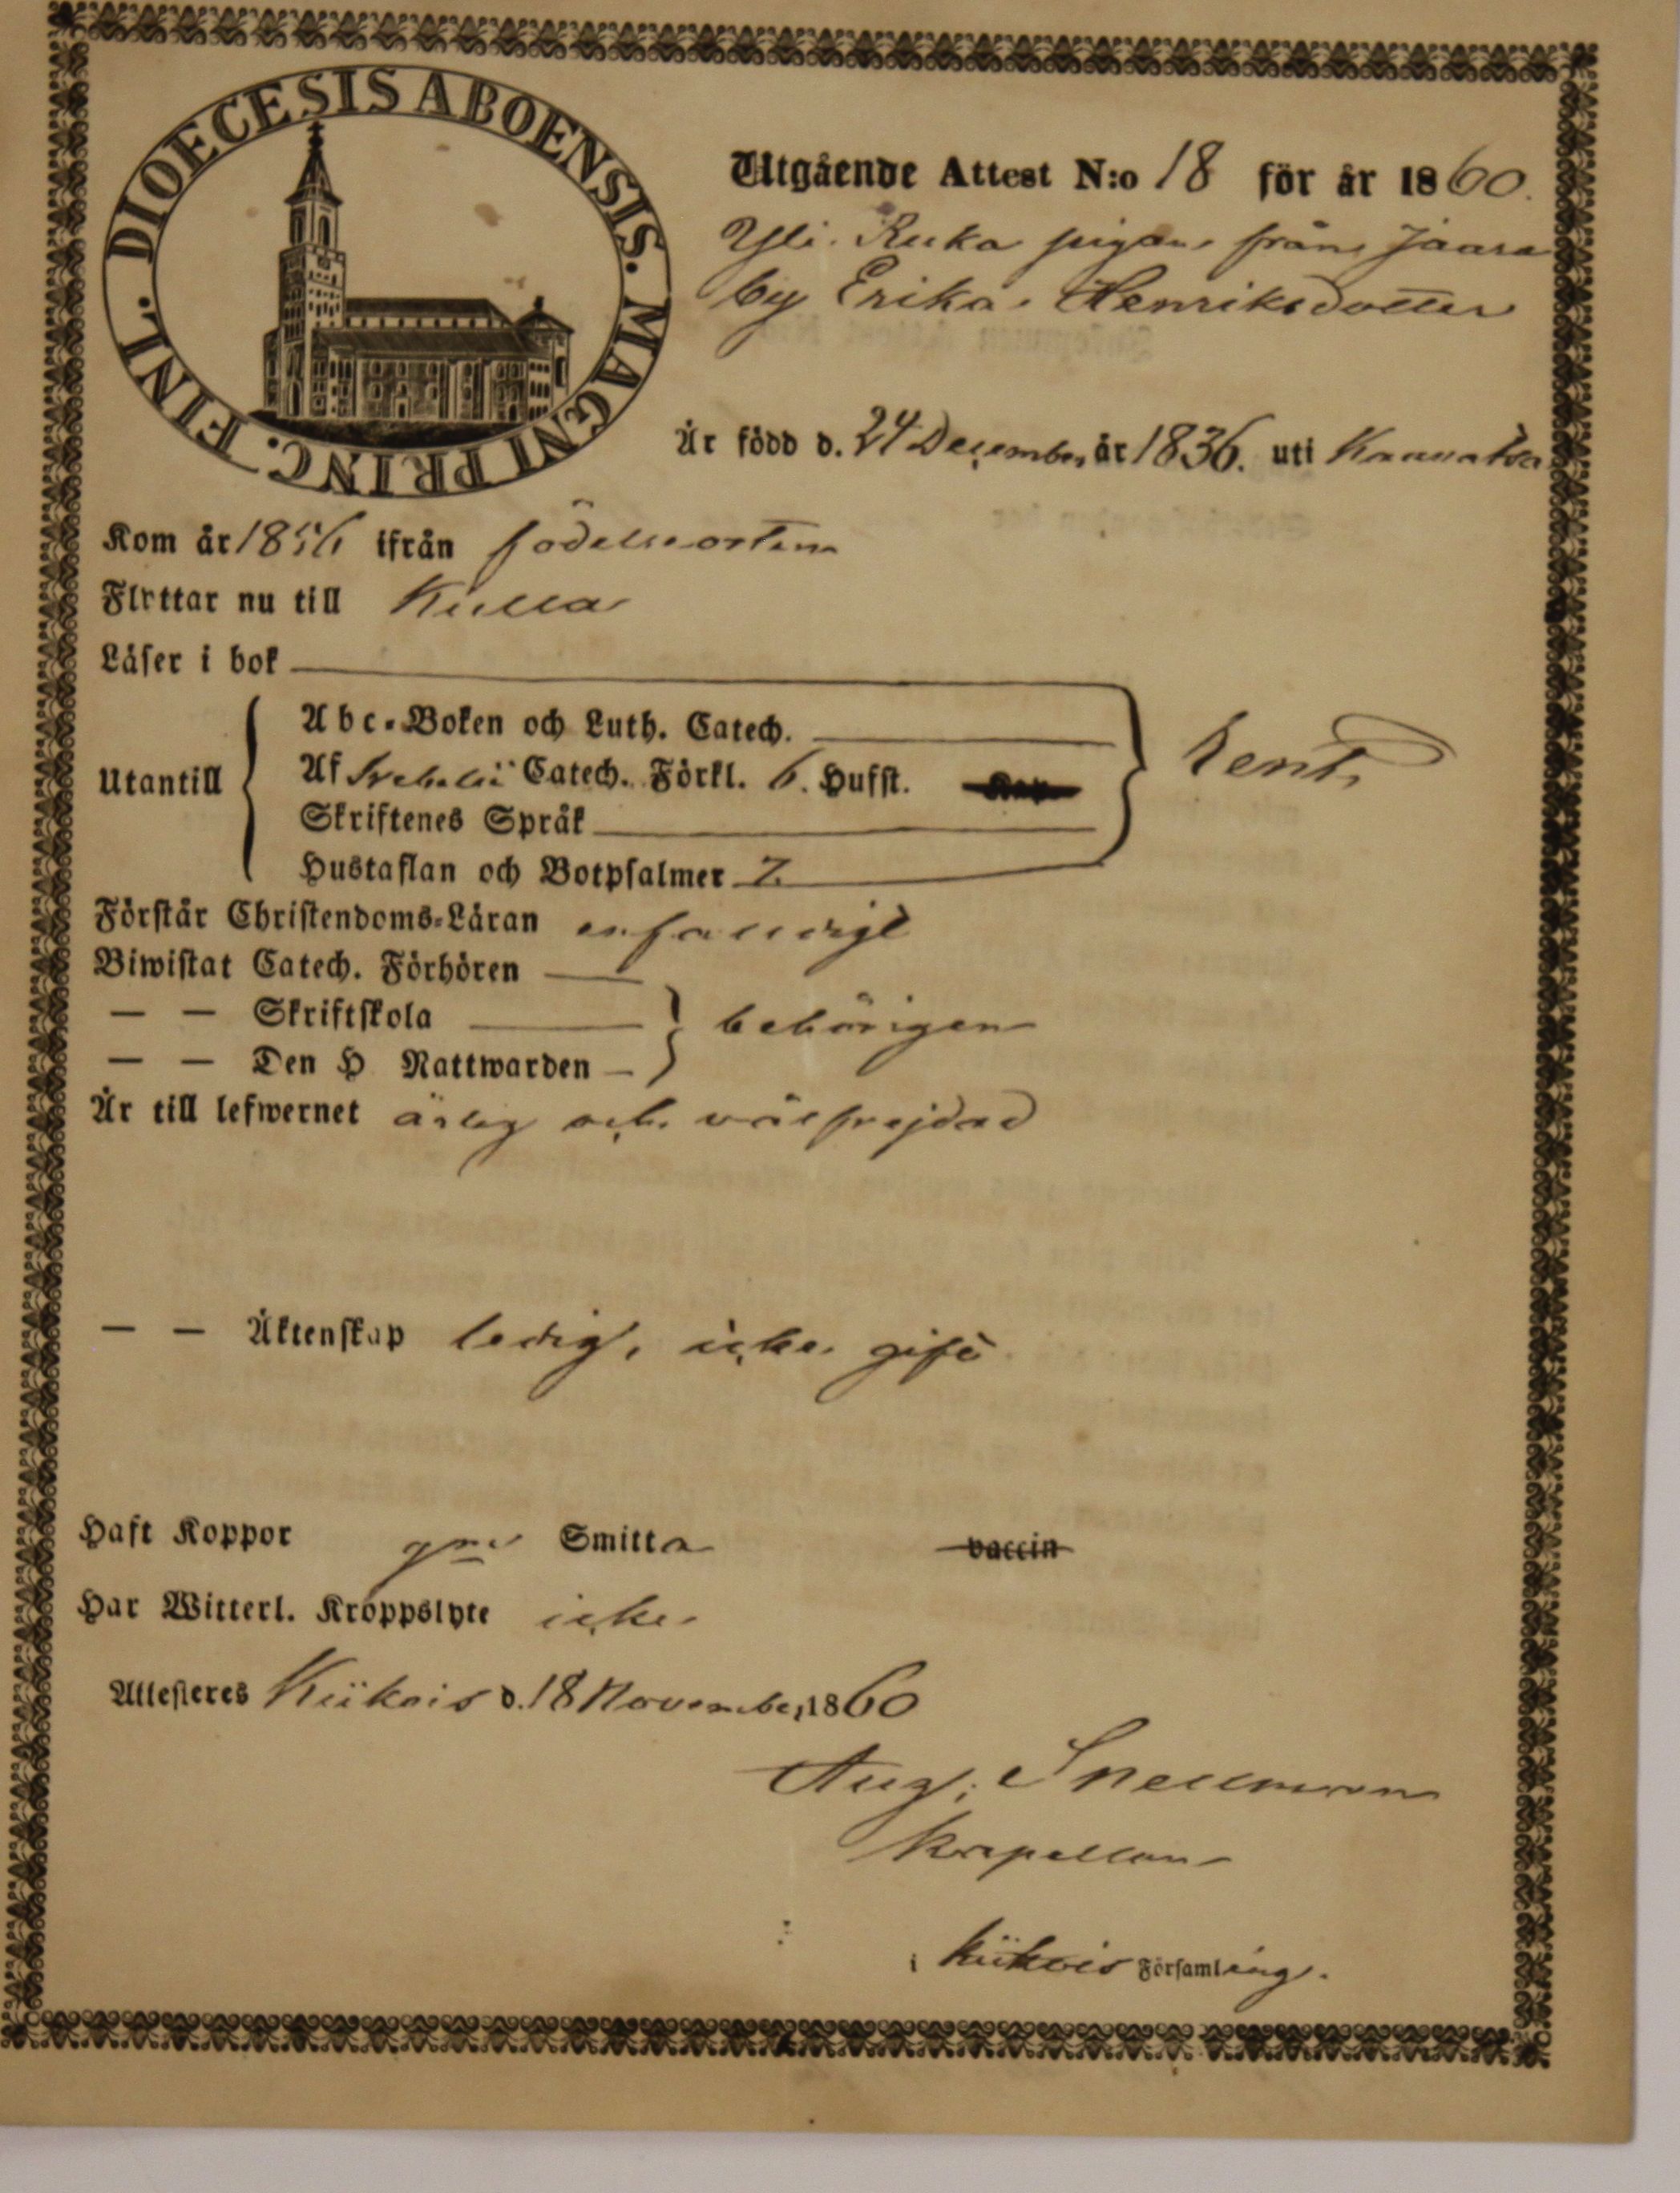 DIOECESIS ABOENSIS. MAGNI PRINC. FINL.
Utgående Attest N:o 18 för år 1860.
Yli Ruka pigan från Jaara
by Erika Henriksdotter
Är född d. 24 December år 1836. uti
Kom år 1856 ifrån födelseorten
Flyttar nu till Kulla
Läser i bok
Abc-Boken och Luth. Catech.
Utantill
Af Svebelii Catech. Förkl. 6. Hufst.
Rent
Skriftenes Språk
Hustaflan och Botpsalmer 7.
Förstår Christendoms-Läran enfaldigt
Biwistat Catech. Förhören
— — Skriftskola
behörigen
— — Den H Nattwarden
Är till lefwernet ärlig och välfrejdad
— — Äktenskap ledig, icke gift
Haft Koppor gm Smitta vaccin
Har Witterl. Kroppslyte icke
Attesteres Kiikois d. 18 November 1860
Aug. Snellman
Kapellan
i Kiikois Församling.